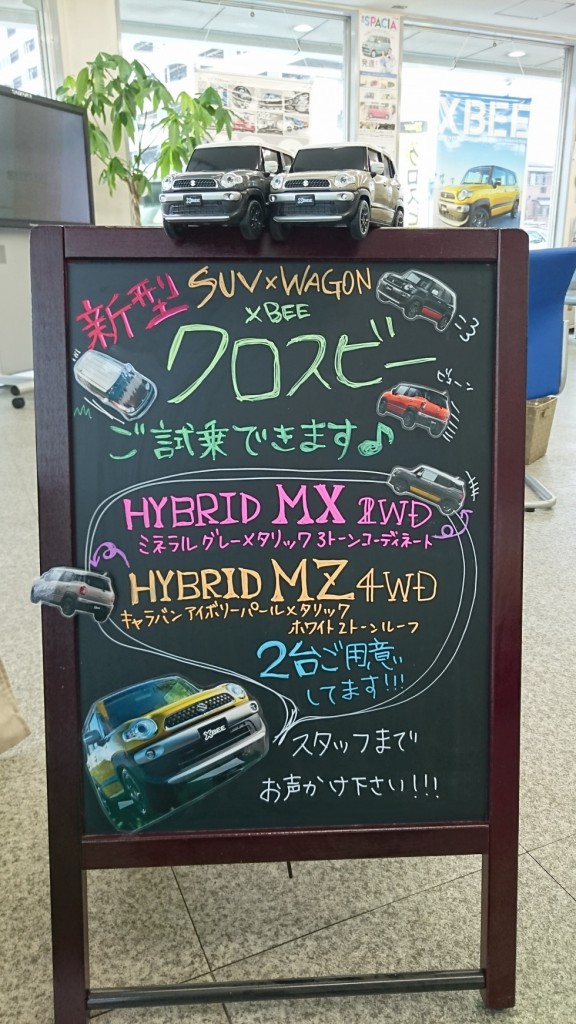 SPACIA
XBEE
新型 SUV×WAGON
XBEE
クロスビー
ビューン
ご試乗できます♪
HYBRID MX 2WD
ミネラルグレーメタリック 3トーンコーディネート
HYBRID MZ 4WD
キャラバンアイボリーパールメタリック
ホワイト2トーンルーフ
2台ご用意
してます!!!
XBEE
スタッフまで
お声かけ下さい!!!